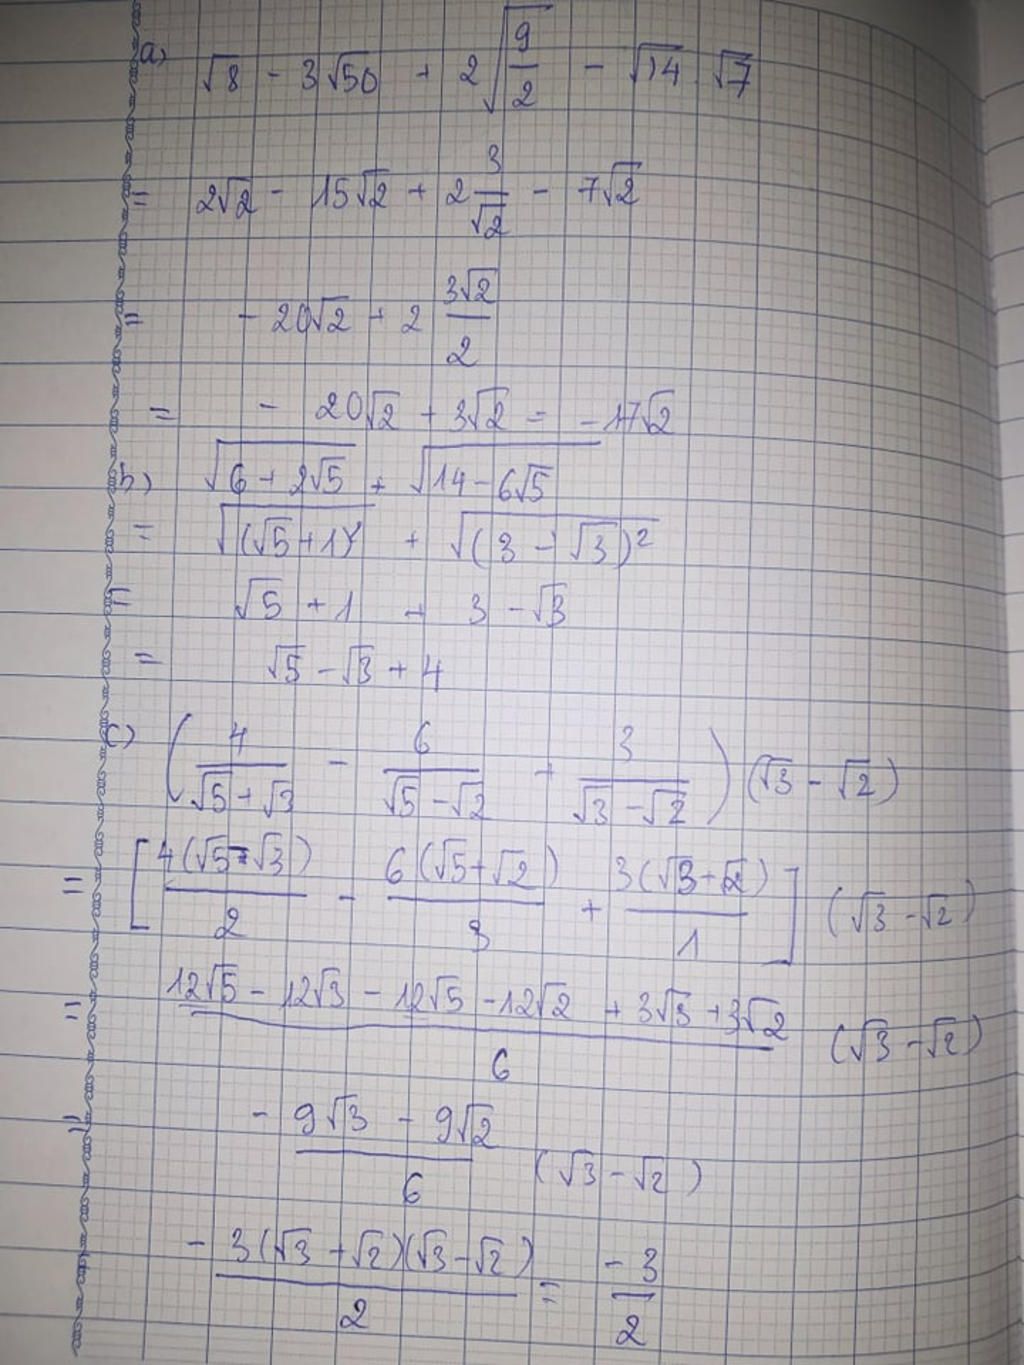 a) √8 - 3√50 + 2√(9/2) - √14 . √7
= 2√2 - 15√2 + 2 3/√2 - 7√2
= - 20√2 + 2 3√2/2
= - 20√2 + 3√2 = - 17√2
b) √(6 + 2√5) + √(14 - 6√5)
= √((√5 + 1)²) + √((3 - √3)²)
= √5 + 1 + 3 - √3
= √5 - √3 + 4
c) (4/(√5 + √3) - 6/(√5 - √2) + 3/(√3 - √2)) (√3 - √2)
= [4(√5 - √3)/2 - 6(√5 + √2)/3 + 3(√3 + √2)/1] (√3 - √2)
= (12√5 - 12√3 - 12√5 - 12√2 + 3√3 + 3√2)/6 (√3 - √2)
= - (9√3 - 9√2)/6 (√3 - √2)
- 3(√3 + √2)(√3 - √2)/2 = -3/2